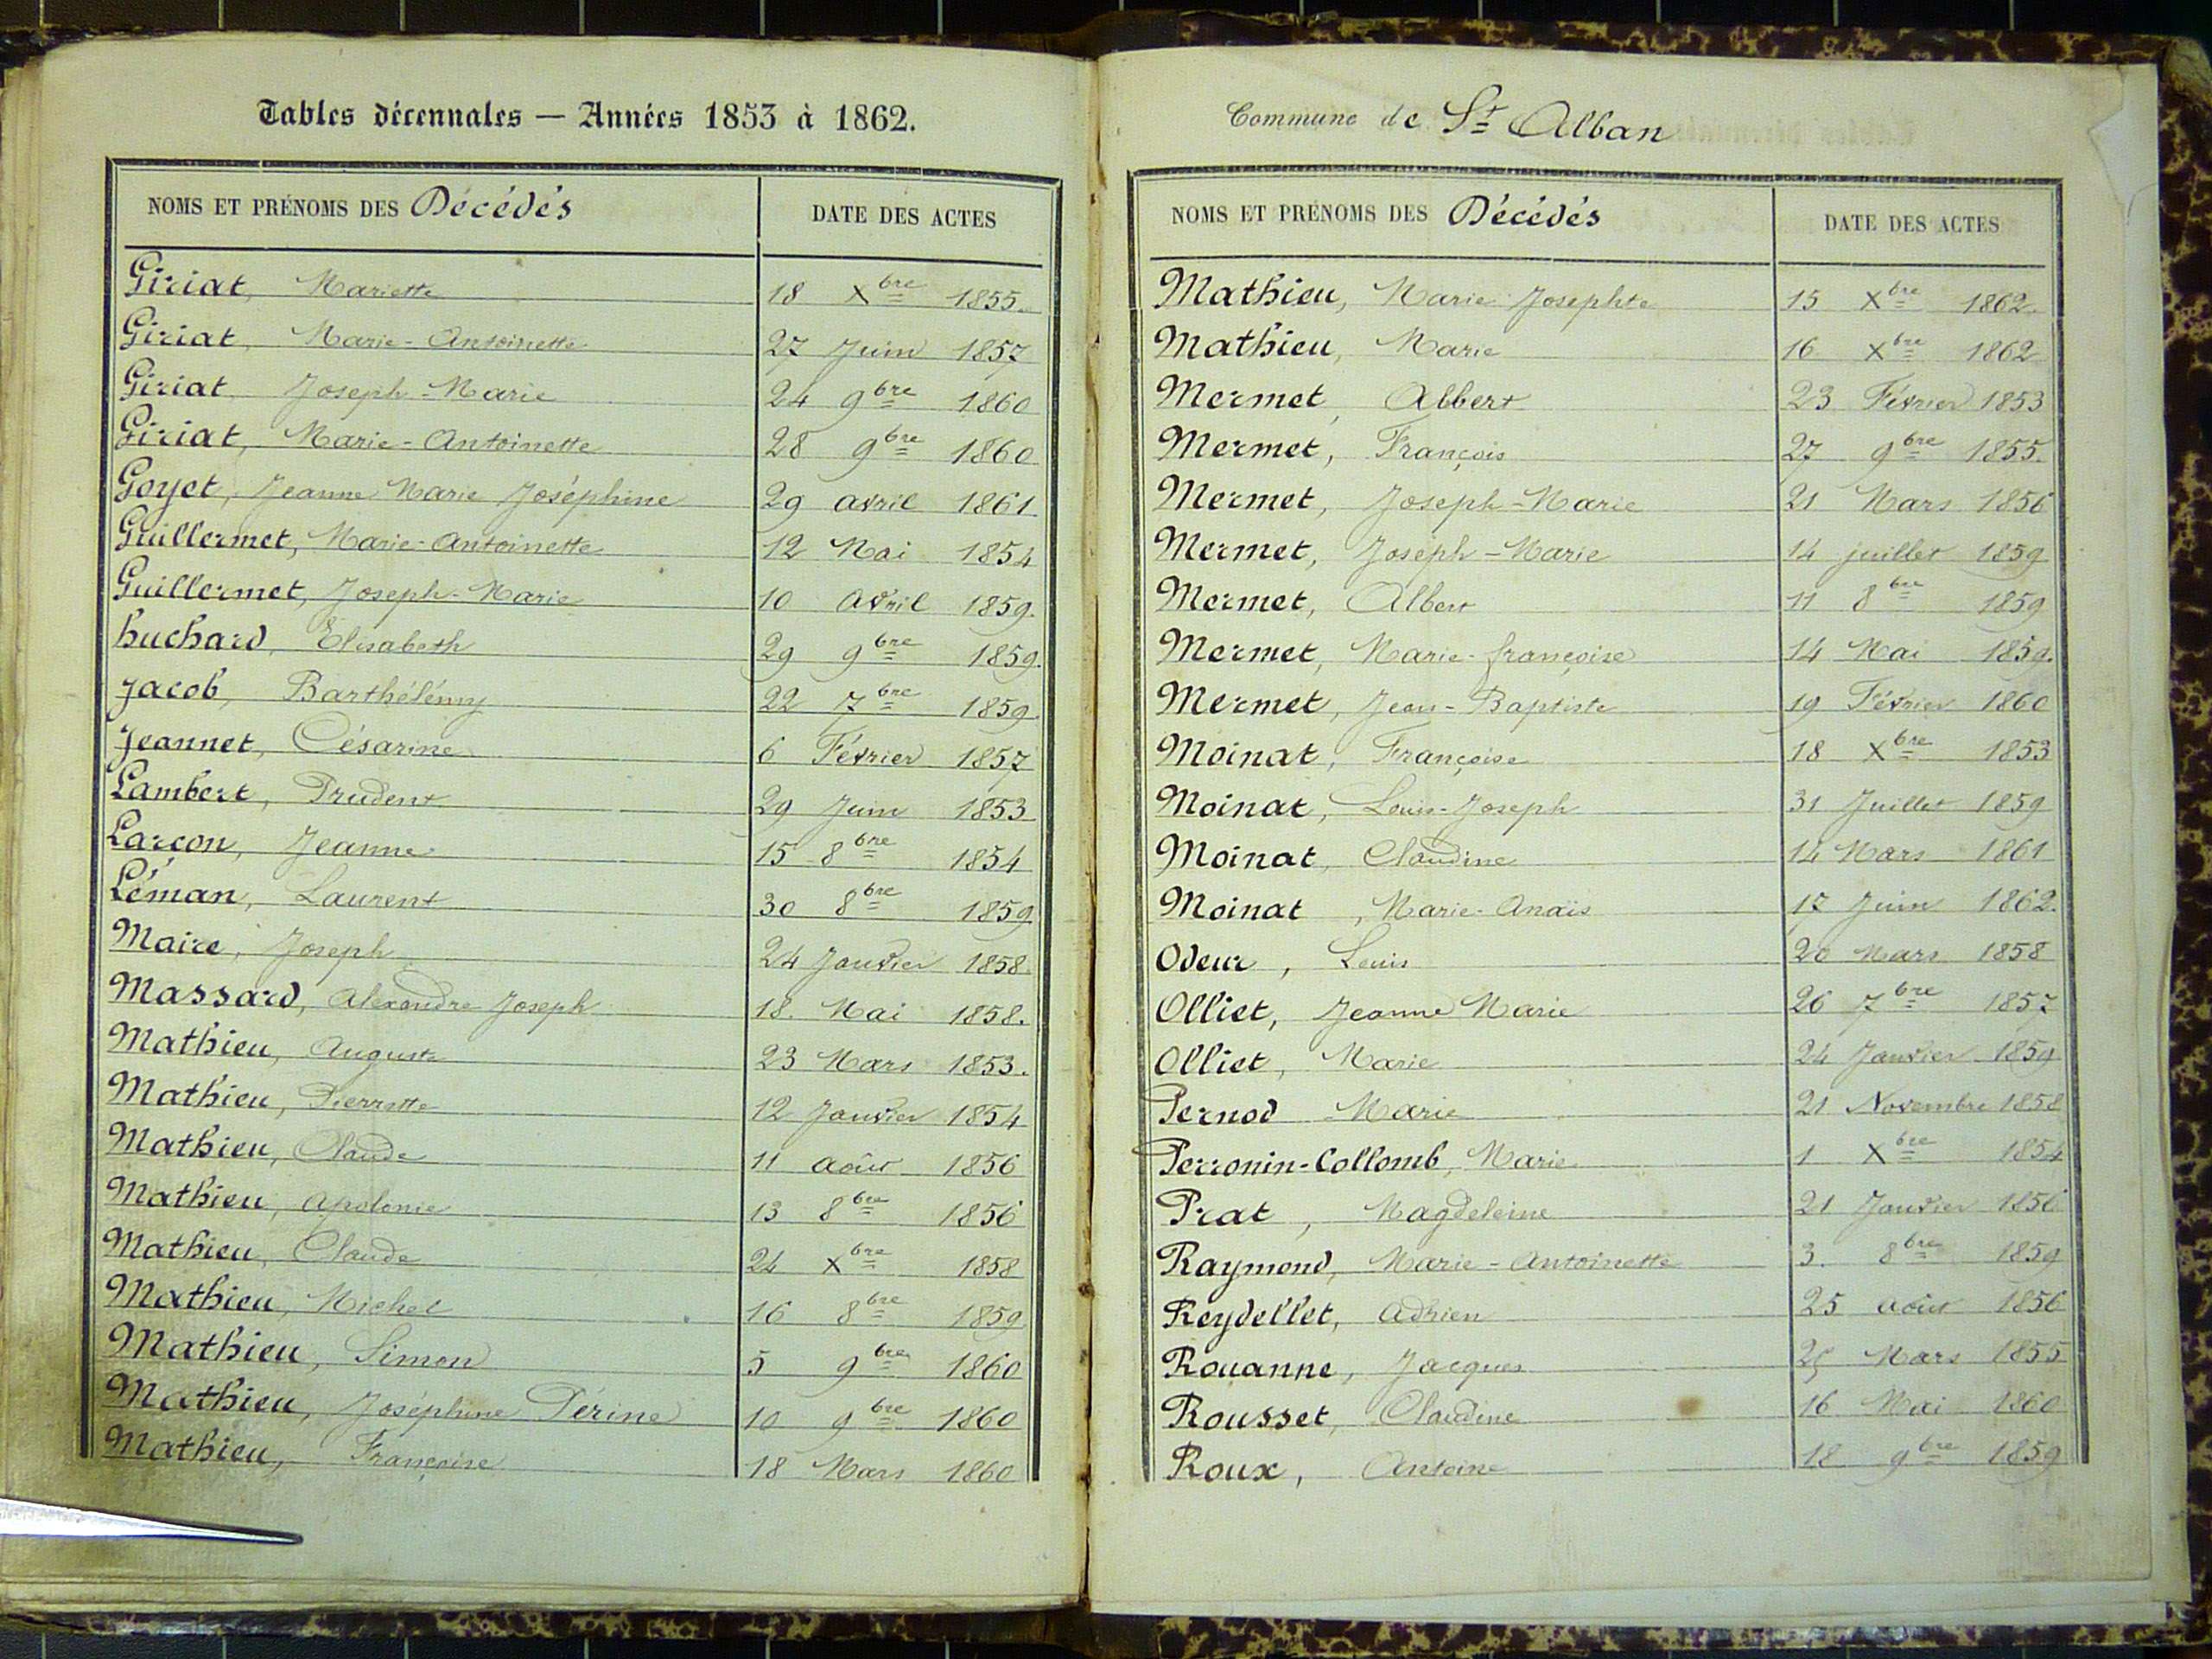 Tables décennales — Années 1853 à 1862.
NOMS ET PRÉNOMS DES Décédés DATE DES ACTES
Giriat, Mariette 18 Xbre 1855.
Giriat, Marie-Antoinette 27 Juin 1857
Giriat, Joseph-Marie 24 9bre 1860
Giriat, Marie-Antoinette 28 9bre 1860
Goyet, Jeanne Marie Joséphine 29 avril 1861
Guillermet, Marie-Antoinette 12 Mai 1854
Guillermet, Joseph-Marie 10 Avril 1859.
huchard, Elisabeth 29 9bre 1859.
Jacob, Barthélémy 22 7bre 1859.
Jeannet, Césarine 6 Février 1857
Lambert, Prudent 29 Juin 1853
Larçon, Jeanne 15 8bre 1854
Léman, Laurent 30 8bre 1859
Maire, Joseph 24 Janvier 1858.
Massard, Alexandre Joseph 18. Mai 1858.
Mathieu, Auguste 23 Mars 1853.
Mathieu, Pierrette 12 Janvier 1854
Mathieu, Claude 11 août 1856
Mathieu, Apolonie 13 8bre 1856
Mathieu, Claude 24 Xbre 1858
Mathieu, Michel 16 8bre 1859
Mathieu, Simon 5 9bre 1860
Mathieu, Joséphine Périne 10 9bre 1860
Mathieu, Françoise 18 Mars 1860
Commune de St Alban
NOMS ET PRÉNOMS DES Décédés DATE DES ACTES
Mathieu, Marie Josephte 15 Xbre 1862.
Mathieu, Marie 16 Xbre 1862
Mermet, Albert 23 Février 1853
Mermet, François 27 9bre 1855.
Mermet, Joseph-Marie 21 Mars 1856
Mermet, Joseph-Marie 14 juillet 1859
Mermet, Albert 11 8bre 1859
Mermet, Marie-françoise 14 Mai 1859.
Mermet, Jean-Baptiste 19 Février 1860
Moinat, Françoise 18 Xbre 1853
Moinat, Louis-Joseph 31 Juillet 1859
Moinat, Claudine 14 Mars 1861
Moinat, Marie-Anaïs 17 Juin 1862.
Odeur, Louis 20 Mars 1858
Olliet, Jeanne Marie 26 7bre 1857
Olliet, Marie 24 Janvier 1859
Pernod Marie 21 Novembre 1858
Perronin-Collomb, Marie 1 Xbre 1854
Prat, Magdeleine 21 Janvier 1856
Raymond, Marie-Antoinette 3. 8bre 1859
Reydellet, Adrien 25 août 1856
Rouanne, Jacques 25 Mars 1855
Rousset, Claudine 16 Mai 1860
Roux, Antoine 18 9bre 1859